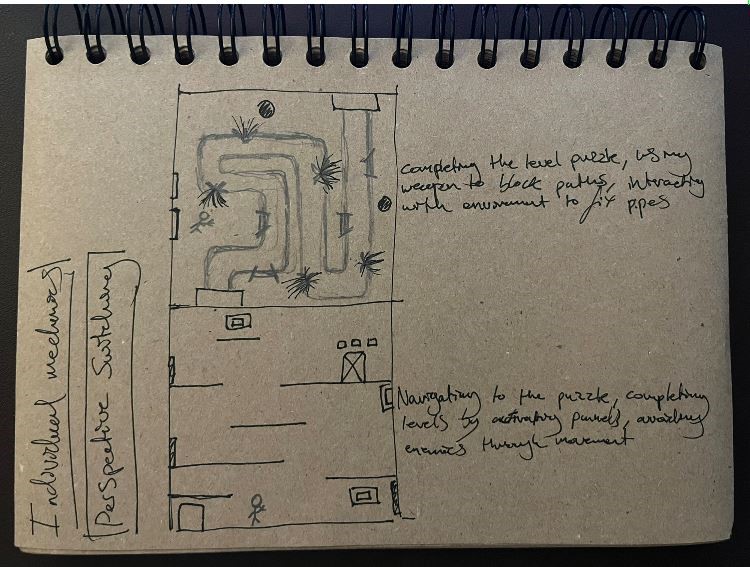 Individual mechanics
Perspective Switching
completing the level puzzle, using
weapon to block paths, interacting
with enviroment to fix pipes
Navigating to the puzzle, completing
levels by activating pannels, avoiding
enemies through movement